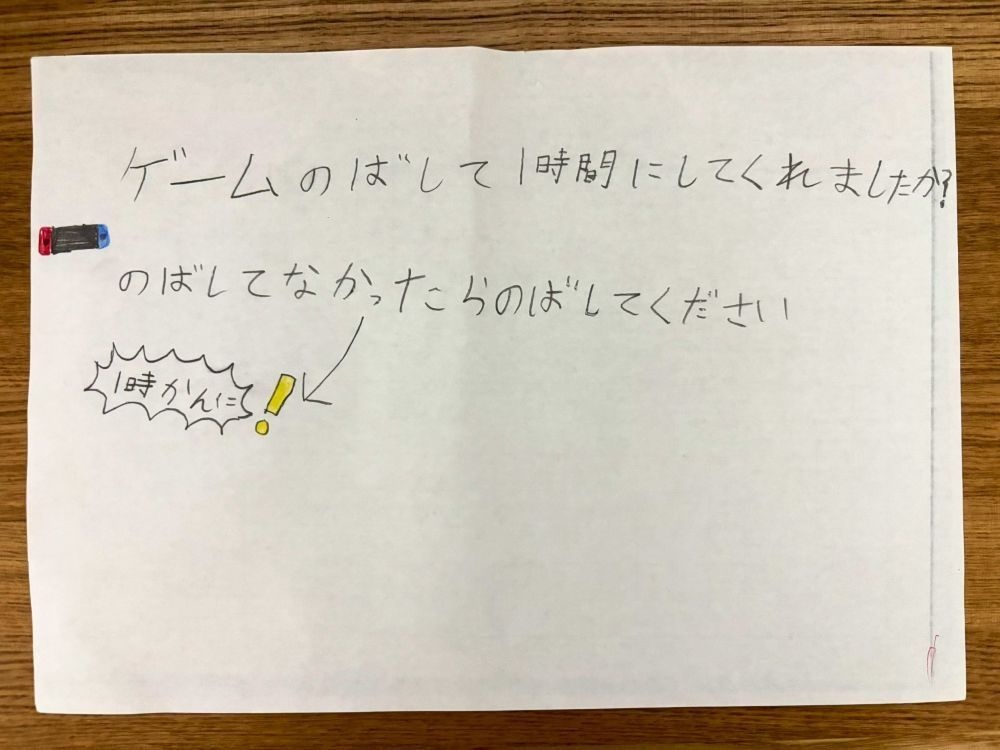 ゲームのばして1時間にしてくれましたか?
のばしてなかったらのばしてください
1時かんに!